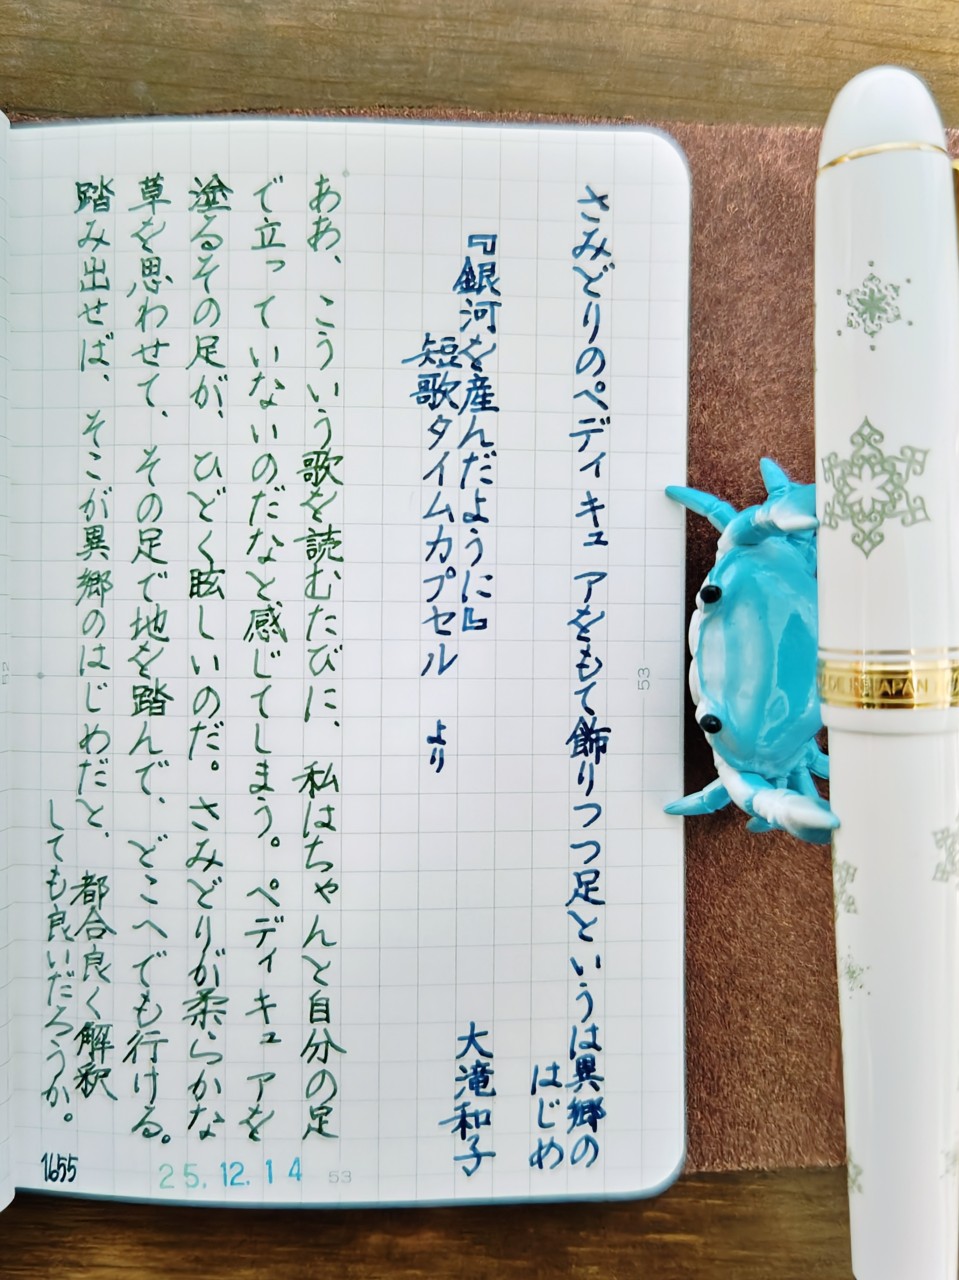 さみどりのペディキュアをもて飾りつつ足というは異郷の
はじめ
『銀河を産んだように』
大滝和子
短歌タイムカプセル より
ああ、こういう歌を読むたびに、私はちゃんと自分の足
で立っていないのだなと感じてしまう。ペディキュアを
塗るその足が、ひどく眩しいのだ。さみどりが柔らかな
草を思わせて、その足で地を踏んで、どこへでも行ける。
踏み出せば、そこが異郷のはじめだと、都合良く解釈
しても良いだろうか。
1655
25.12.14
53
53
JAPAN